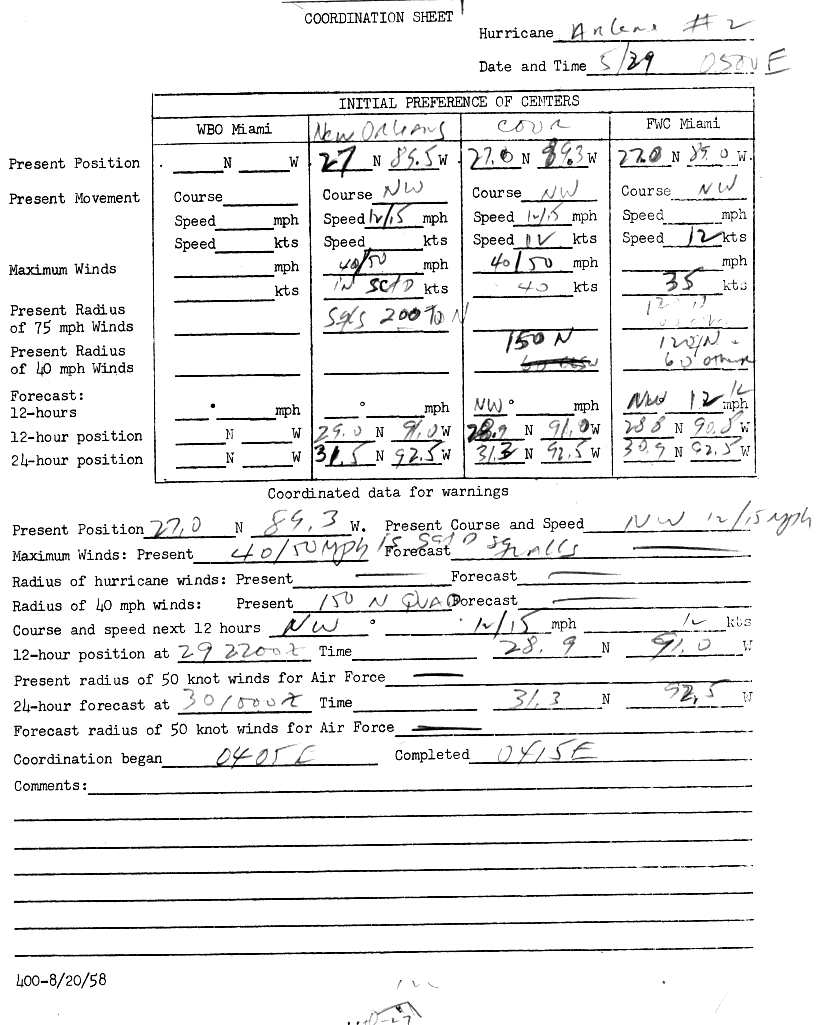 COORDINATION SHEET
Hurricane Arlene #2
Date and Time 5/29 0500 E
INITIAL PREFERENCE OF CENTERS
WBO Miami New Orleans COOR FWC Miami
Present Position N W 27 N 89.5 W 27.0 N 89.3 W 27.0 N 89.0 W.
Present Movement Course Course NW Course NW Course NW
Speed mph Speed 12/15 mph Speed 12/15 mph Speed mph
Speed kts Speed kts Speed 12 kts Speed 12 kts
Maximum Winds mph 40/50 mph 40/50 mph mph
kts in SCTD kts 40 kts 35 kts
Present Radius
of 75 mph Winds Sqls 200 To N
Present Radius 150 N 120/N
of 40 mph Winds 60 other
Forecast:
12-hours ° mph ° mph NW ° mph NW 12 mph
12-hour position N W 29.0 N 91.0 W 28.9 N 91.0 W 28.8 N 90.8 W
24-hour position N W 31.5 N 92.5 W 31.3 N 92.5 W 30.9 N 92.5 W
Coordinated data for warnings
Present Position 27.0 N 89.3 W. Present Course and Speed NW 12/15 mph
Maximum Winds: Present 40/50 MPH Forecast SCTD Squalls
Radius of hurricane winds: Present Forecast
Radius of 40 mph winds: Present 150 N QUAD Forecast
Course and speed next 12 hours NW ° 12/15 mph 12 kts
12-hour position at 29 2200Z Time 28.9 N 91.0 W
Present radius of 50 knot winds for Air Force
24-hour forecast at 30/1000Z Time 31.3 N 92.5 W
Forecast radius of 50 knot winds for Air Force
Coordination began 0405E Completed 0415E
Comments:
400-8/20/58